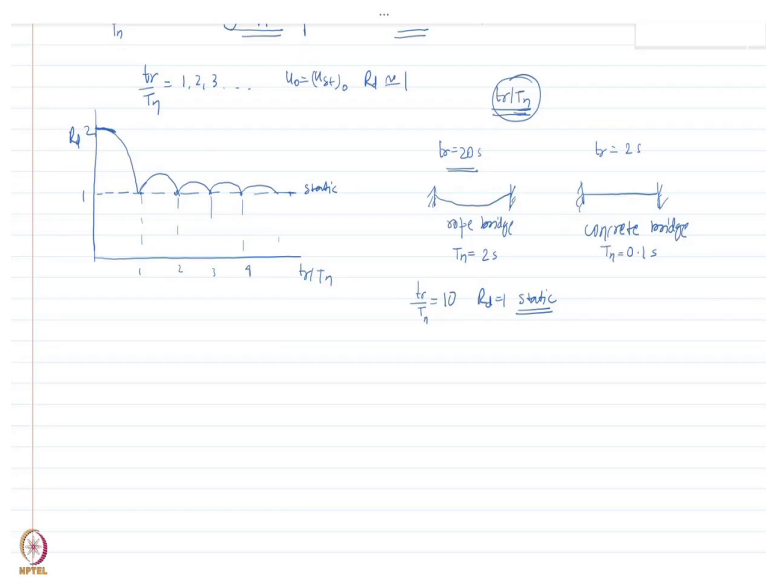 Tn
tr/Tn = 1, 2, 3 . . . . u0 = (ust)0 Rd ≃ 1
tr/Tn
Rd 2
1
static
1 2 3 4 tr/Tn
tr = 20 s
rope bridge
Tn = 2 s
tr = 2 s
concrete bridge
Tn = 0.1 s
tr/Tn = 10 Rd = 1 static
NPTEL